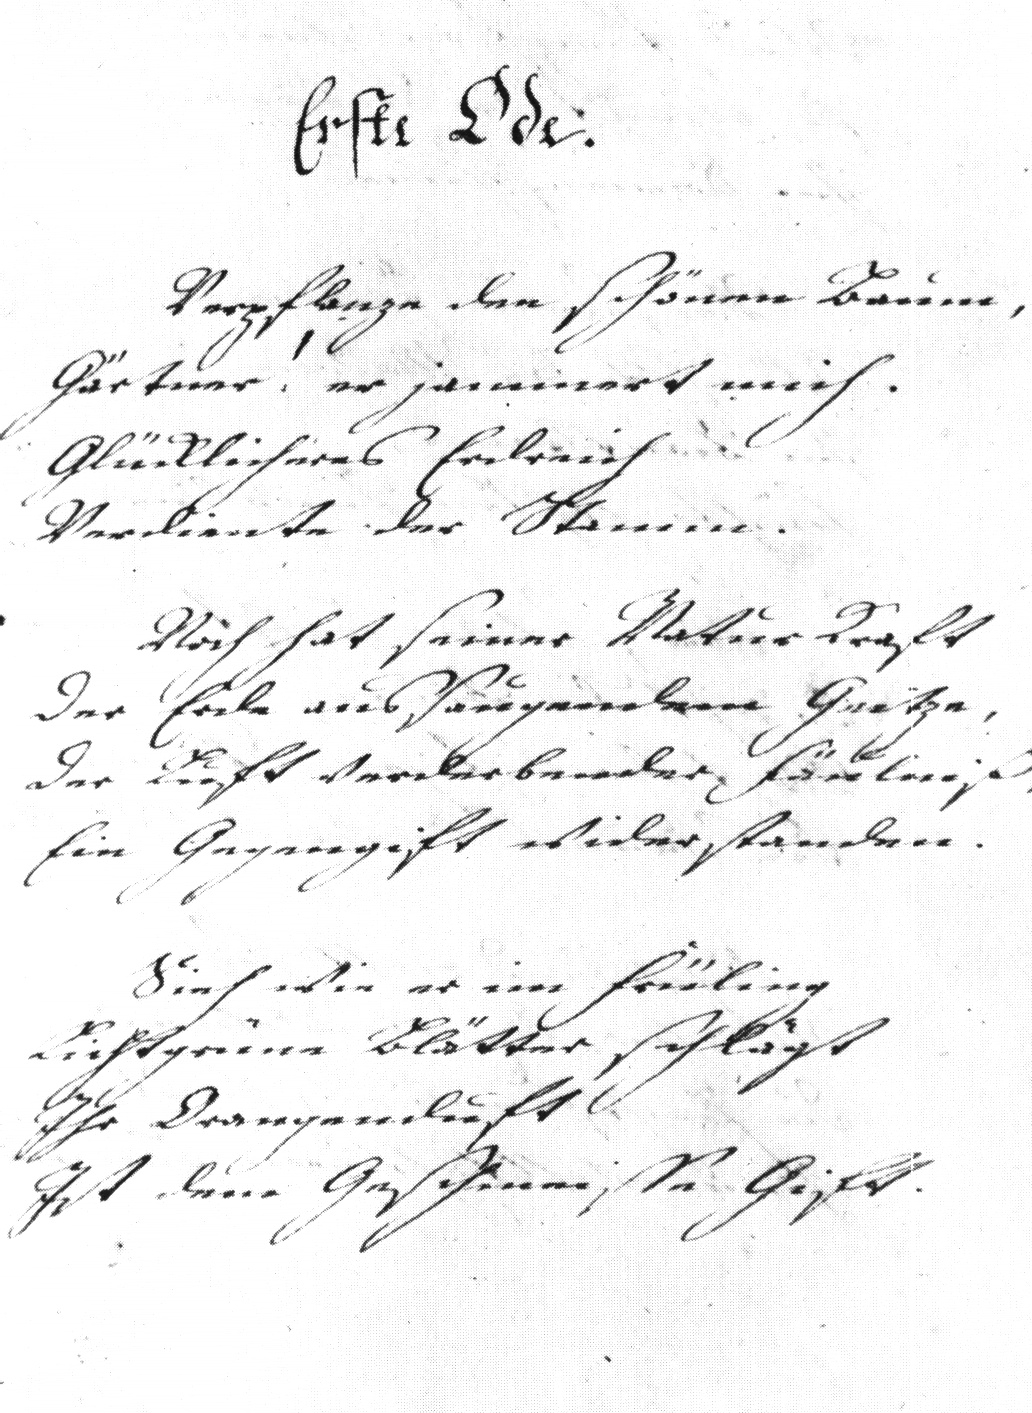 Erste Ode.
Verpflanze den schönen Baum,
Gärtner! er jammert mich.
Glücklicheres Erdreich
Verdiente der Stamm.
Noch hat seiner Natur Krafft
Der Erde aussaugendem Geitze,
Der Lufft verderbender Fäulniß,
Ein Gegengifft widerstanden.
Sieh wie er im Früling
Lichtgrüne Blätter schlägt
Ihr Orangenduft
Ist dem Geschmeisse Gifft.